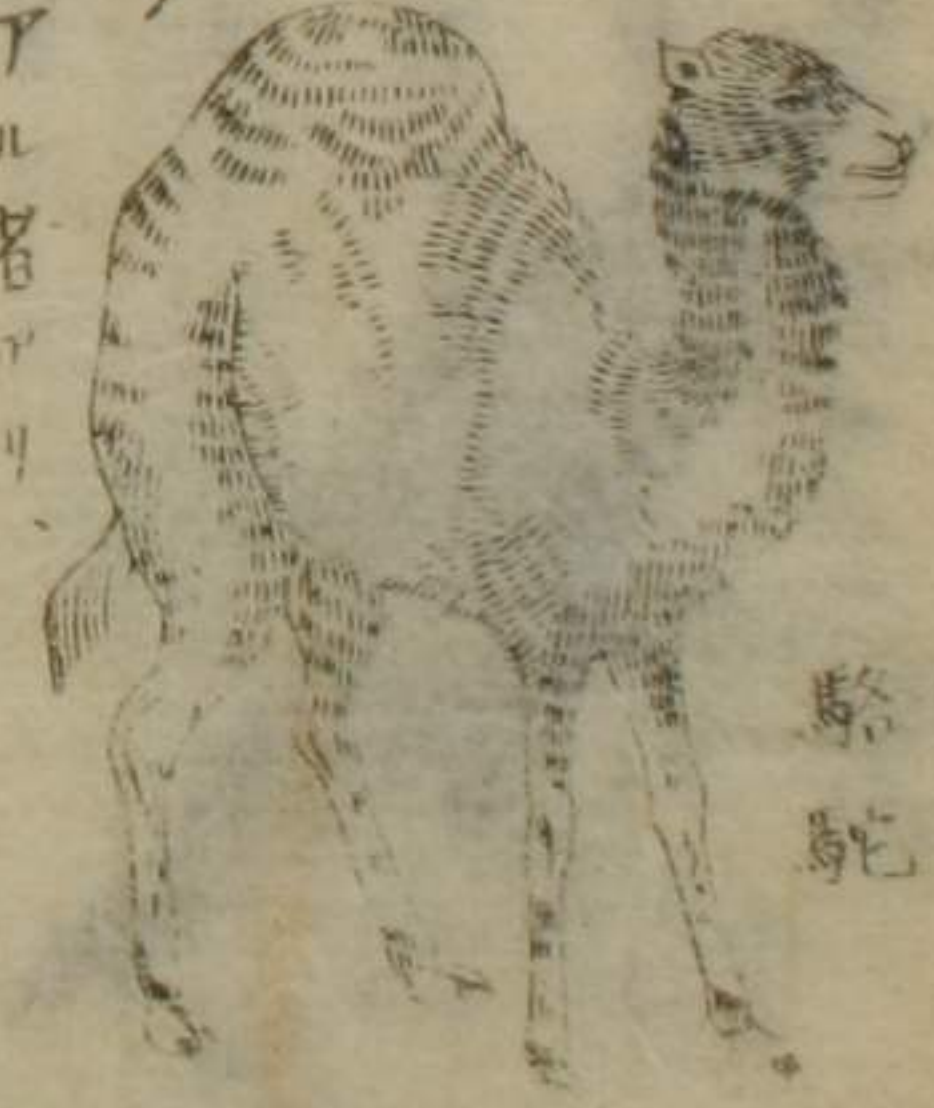 駱駝
アル者アリ